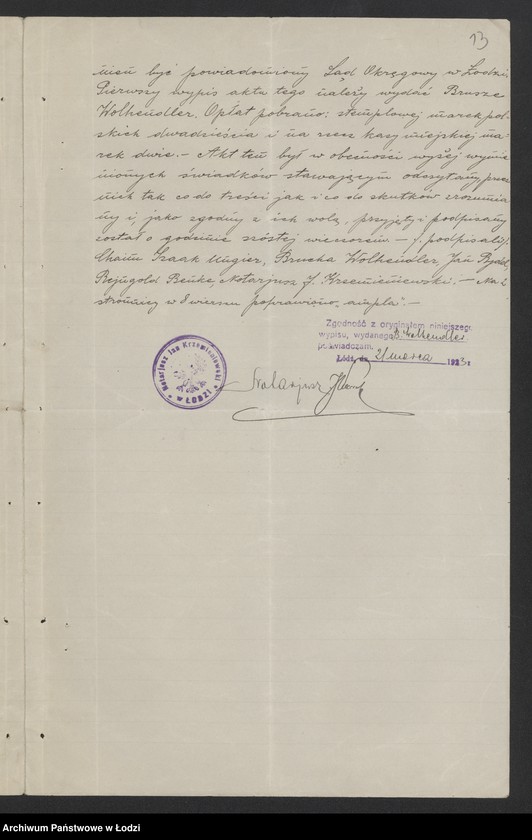 13
nien być powiadomiony Sąd Okręgowy w Łodzi.
Pierwszy wypis aktu tego należy wydać Brusze
Wolhendler. Opłat pobrano: stemplowej marek pol-
skich dwadzieścia i na rzecz kasy miejskiej ma-
rek dwie. – Akt ten był w obecności wyżej wymie
nionych świadków stawającym odczytany, przez
nich tak co do treści jak i co do skutków zrozumia
ny i, jako zgodny z ich wolą, przyjęty i podpisany
został o godzinie szóstej wieczorem – /. podpisali/.
Chaim Izaak Ungier, Brucha Wolhendler, Jan
Notarjusz J. Krzemieniewski. – Na
stronnicy w 8 wierszu poprawiono
Zgodność z oryginałem niniejszego
wypisu, wydanego B. Wolhendler
poświadczam.
Łódź, da 21 marca 1923 r
Notarjusz
Notarjusz Jan Krzemieniewski
w ŁODZI
Archiwum Państwowe w Łodzi